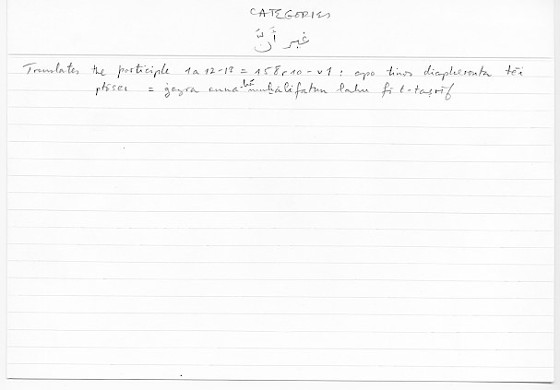 CATEGORIES
غير أنّ
Translates the participle 1a12-13 = 158r10-v1: apo tinos diapheronta tēi
ptōsei = ġayra anna hā muḫālifatun lahu fī t-taṣrīf